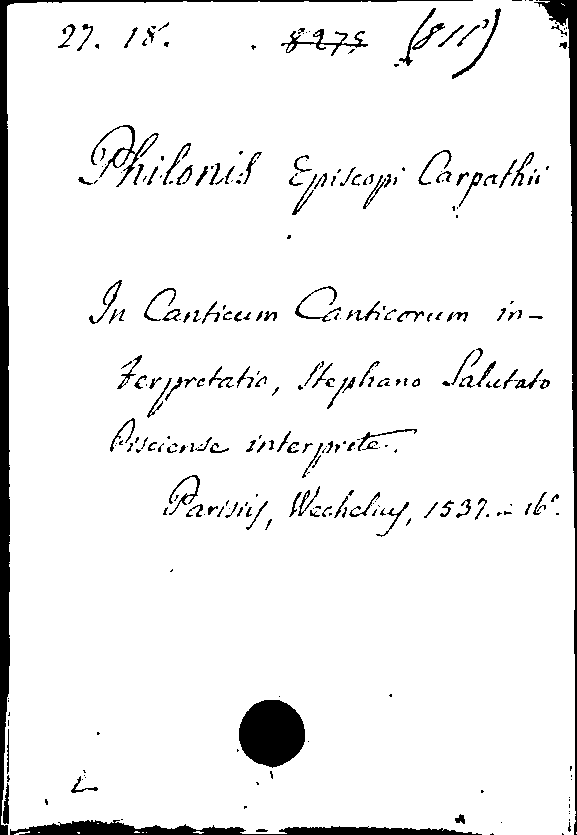 27. 18. 8275 (811)
Philonis Episcopi Carpathii
In Canticum Canticorum in-
terpretatio, Stephano Salutato
Pisciense interprete.
Parisiis, Wechelius, 1537. - 16°.